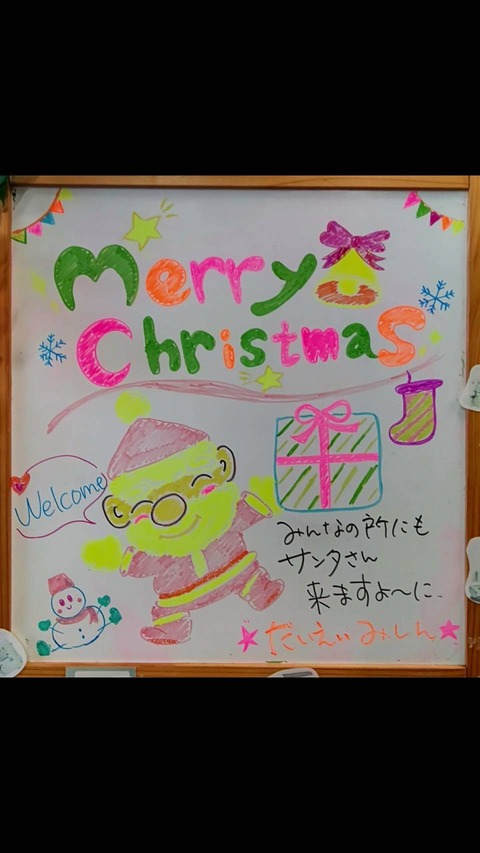 Merry
Christmas
Welcome
みんなの所にも
サンタさん
来ますよ~に..
★だいえいみしん★